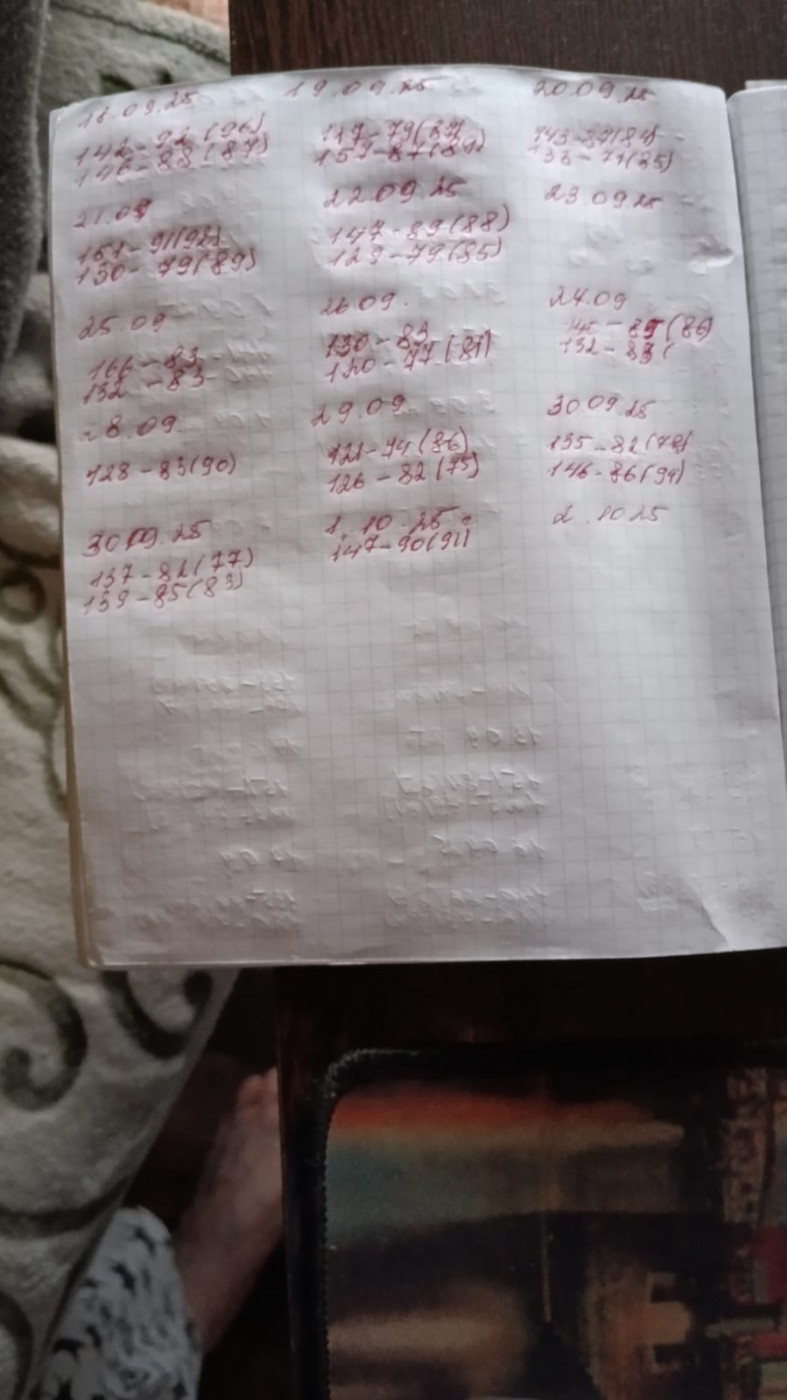 18.09.25
142-92(96)
146-88(87)
19.09.25
117-79(87)
159-87(89)
20.09.25
143-89(84)
133-71(85)
21.09
151-91(92)
130-79(89)
22.09.25
147-89(88)
129-79(85)
23.09.25
25.09
166-83
132-83
26.09.
130-83
120-77(81)
24.09
145-85(86)
132-83(
28.09.
128-83(90)
29.09.
121-74(86)
126-82(75)
30.09.25
135-82(78)
146-86(94)
30.09.25
137-82(77)
139-85(83)
1.10.25
147-90(91)
2.10.25